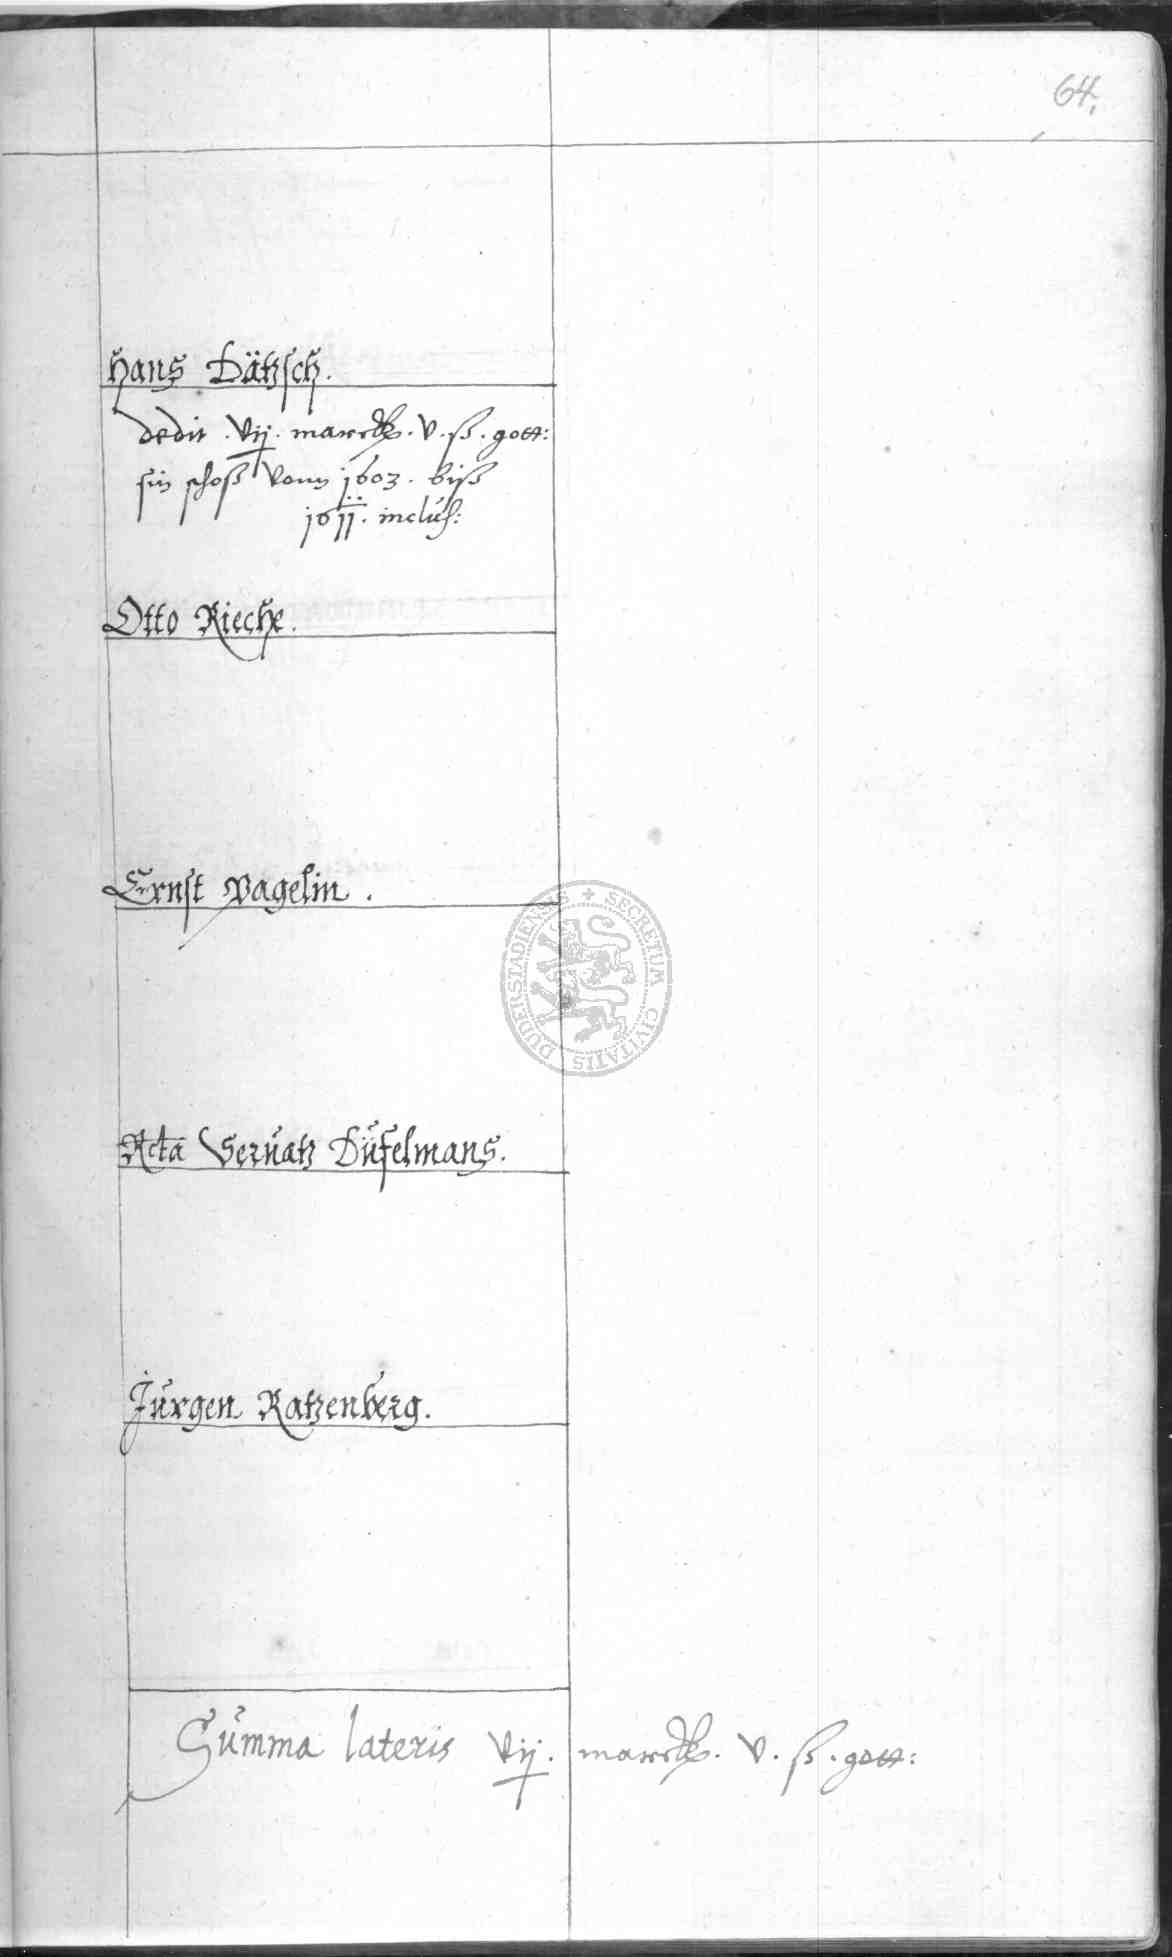 64.
Hans Dätzsch.
dedit . vij . marck . v . ß . gott:
sin schoß vonn 1603 . biß
1611 . inclus:
Otto Rieche.
Ernst Wagelin .
Relicta Bernatz Düfelmans.
Jurgen Ratzenberg.
Summa lateris vij . marck . v . ß . gott:
SECRETUM CIVITATIS DUDERSTADIENSIS